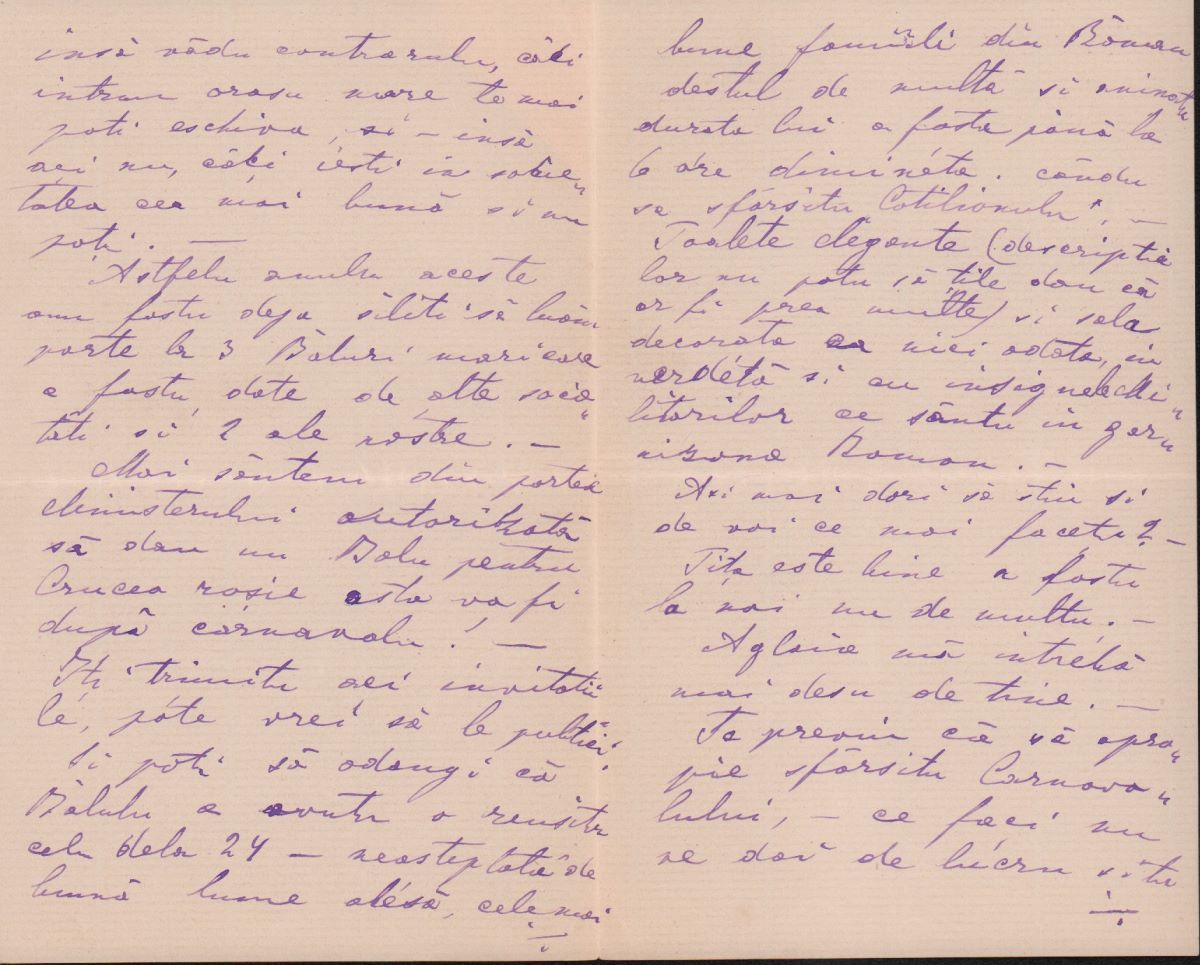 însă vĕdu contrarulu, căci
intrun orasu mare te mai
poti eschiva, si – însă
aci nu, căci iesti in socie„
tatea cea mai bună si nu
poți. —
Astfelu anulu aceste
amu fostu deja siliti să luăm
parte la 3 Baluri mari care
a fostu date de alte socie„
tăti si 2 ale nóstre. —
Mai sântem din partea
Ministerului autorizată
să dau un Balu pentru
Crucea rosie asta va fi
după carnavalu. —
Iti trimitu aci invitatii
le, póte vrei să le publici.
Si poti să adaugi că
Balulu a avutu o reusita
celu dela 24 — neasteptată de
bună lume alésă, cele mai
bune familii din Roman
destul de multă si animată„
durata lui a fostu până la
6 óre diminéta. cându
sa sfârsitu Cotilionulu". —
Toalete elegante (descriptia
lor nu potu să țile dau că
ar fi prea multe) si sala
decorata ca nici odata, in
verdétă si cu insignele Mi„
litarilor ce sântu in gar„
nizona Roman. —
Asi mai dori să stiu si
de voi ce mai facetu? —
Tita este bine a fostu
la noi nu de multu. —
Aglaia mă intrebă
mai desu de tine. —
Te previn că să apro„
pie sfârsitu Carnava„
lului, — ce faci nu
ne dai de lucru si tu